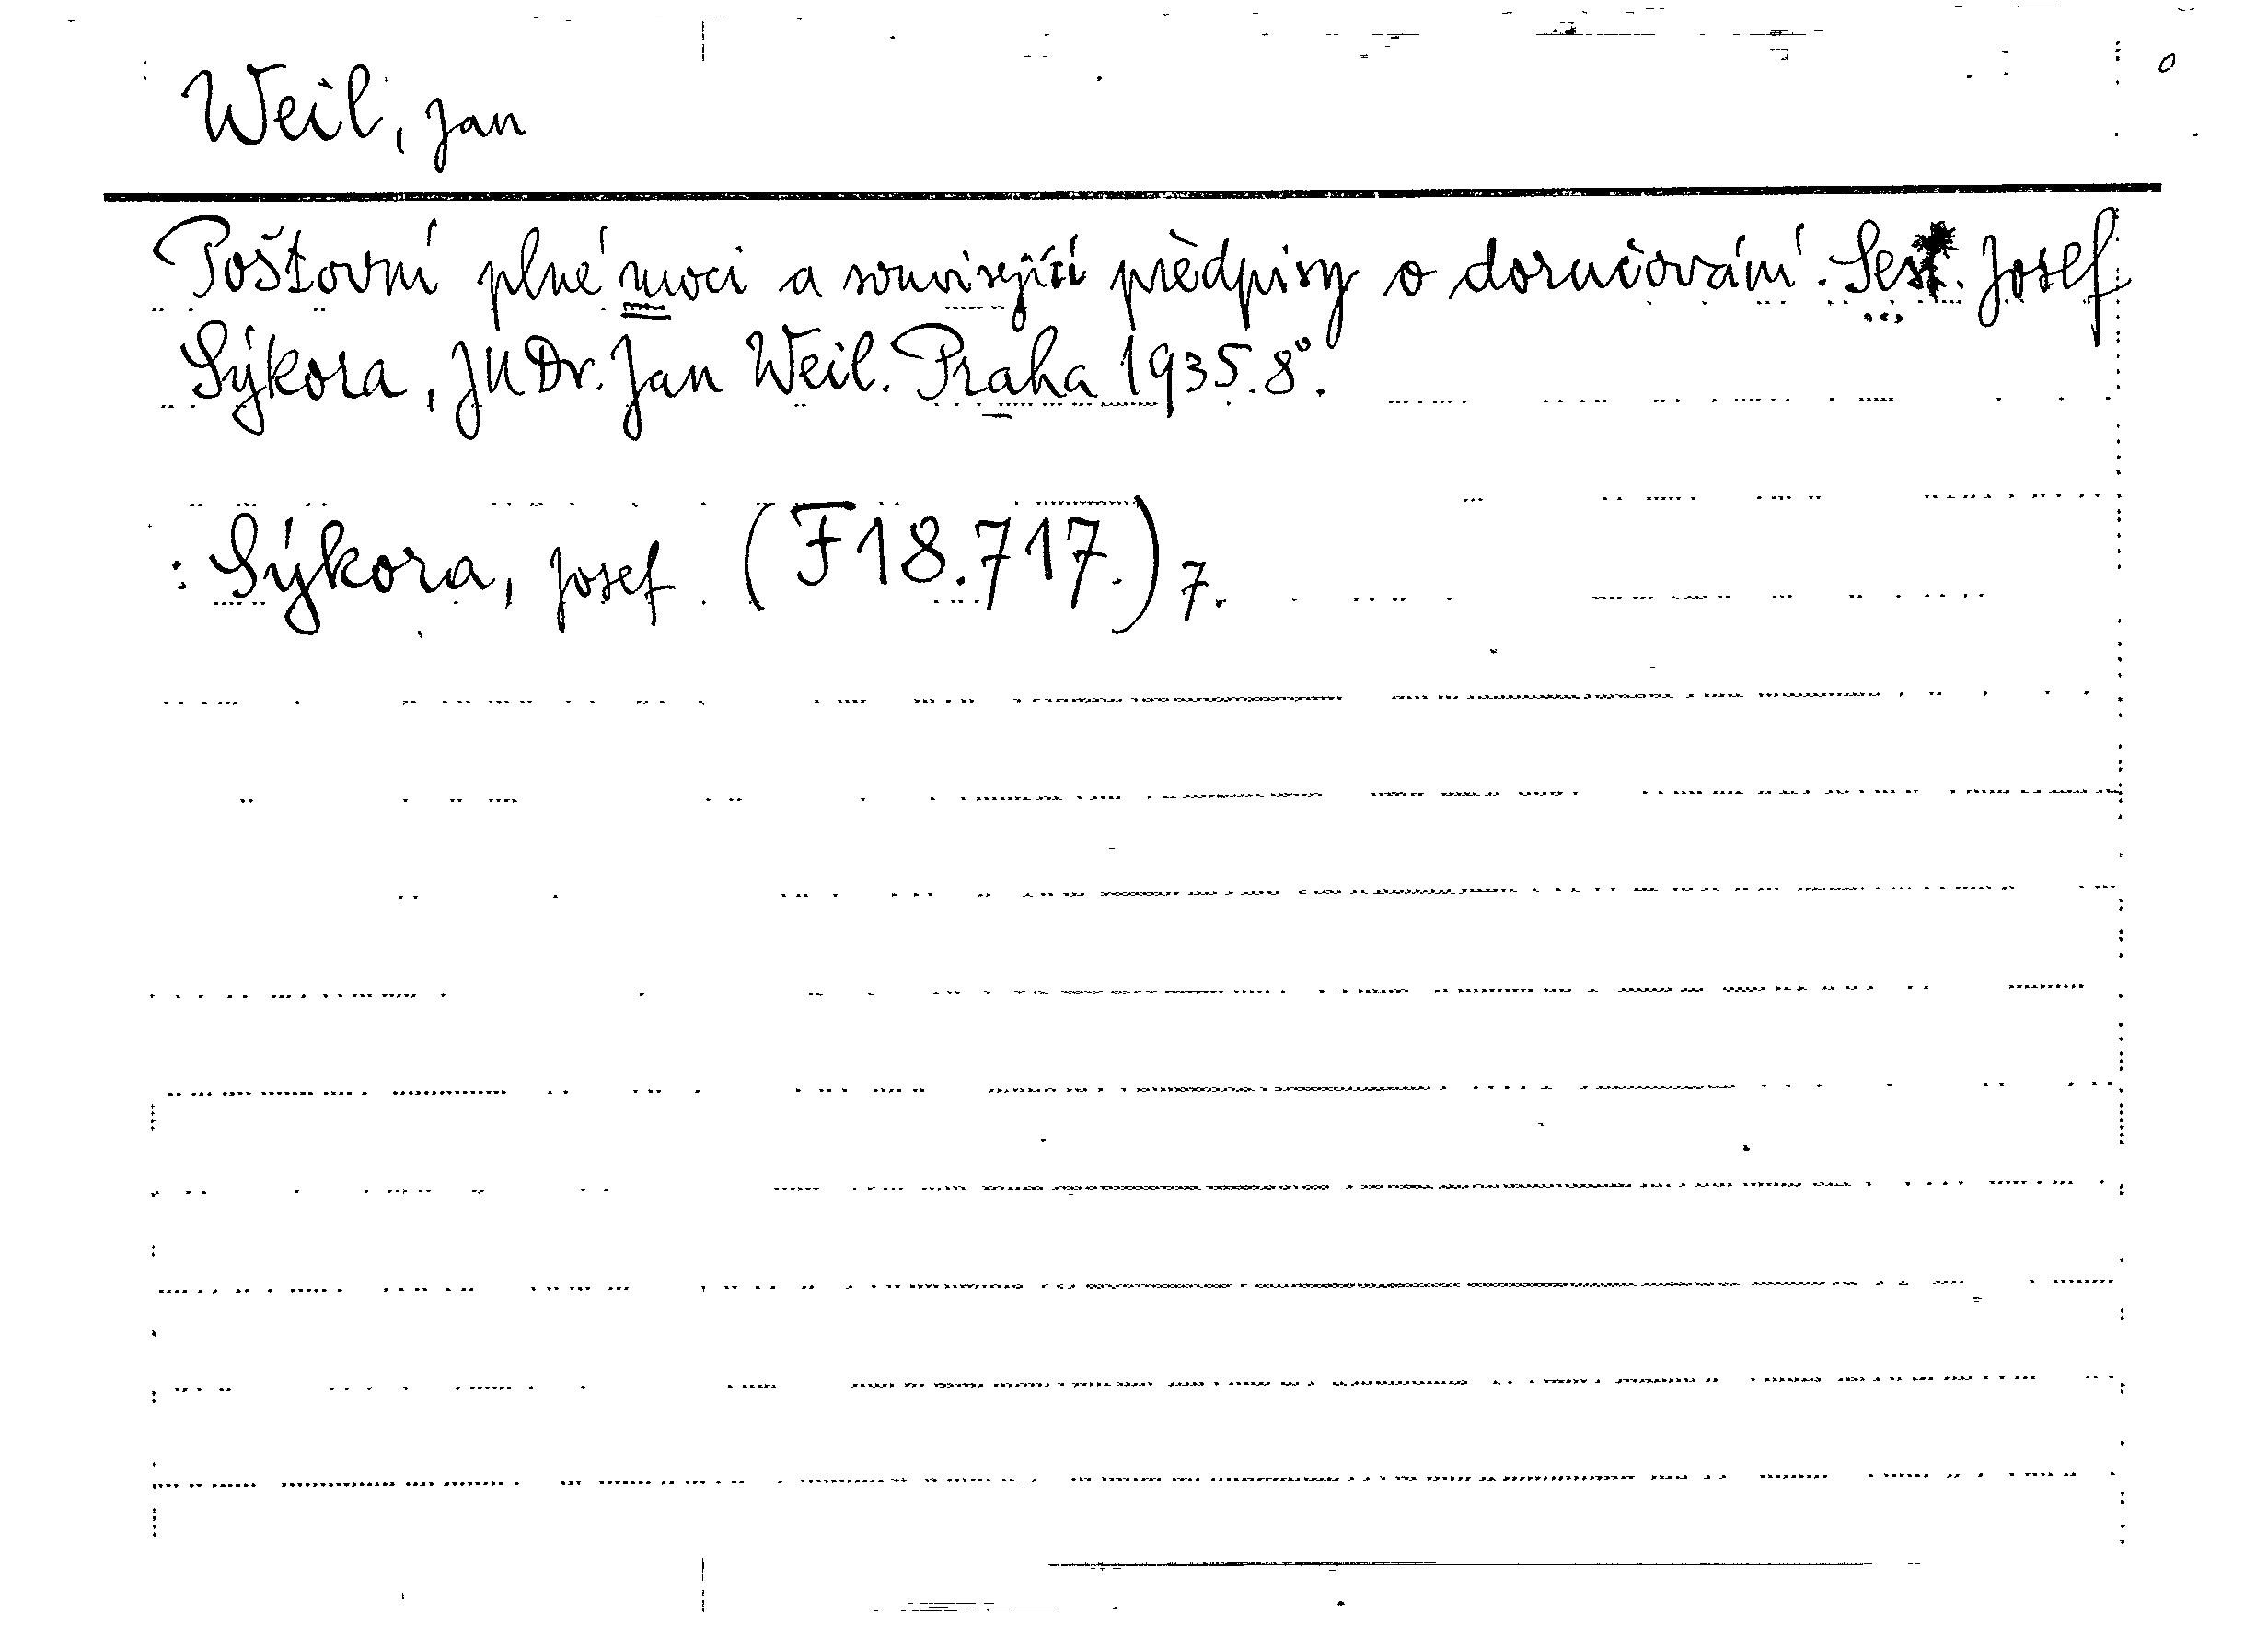 Weil, Jan
Poštovní plné moci a související předpisy o doručování. Sest. Josef
Sýkora, JUDr. Jan Weil. Praha 1935. 8°.
: Sýkora, Josef (F18.717.) 7.